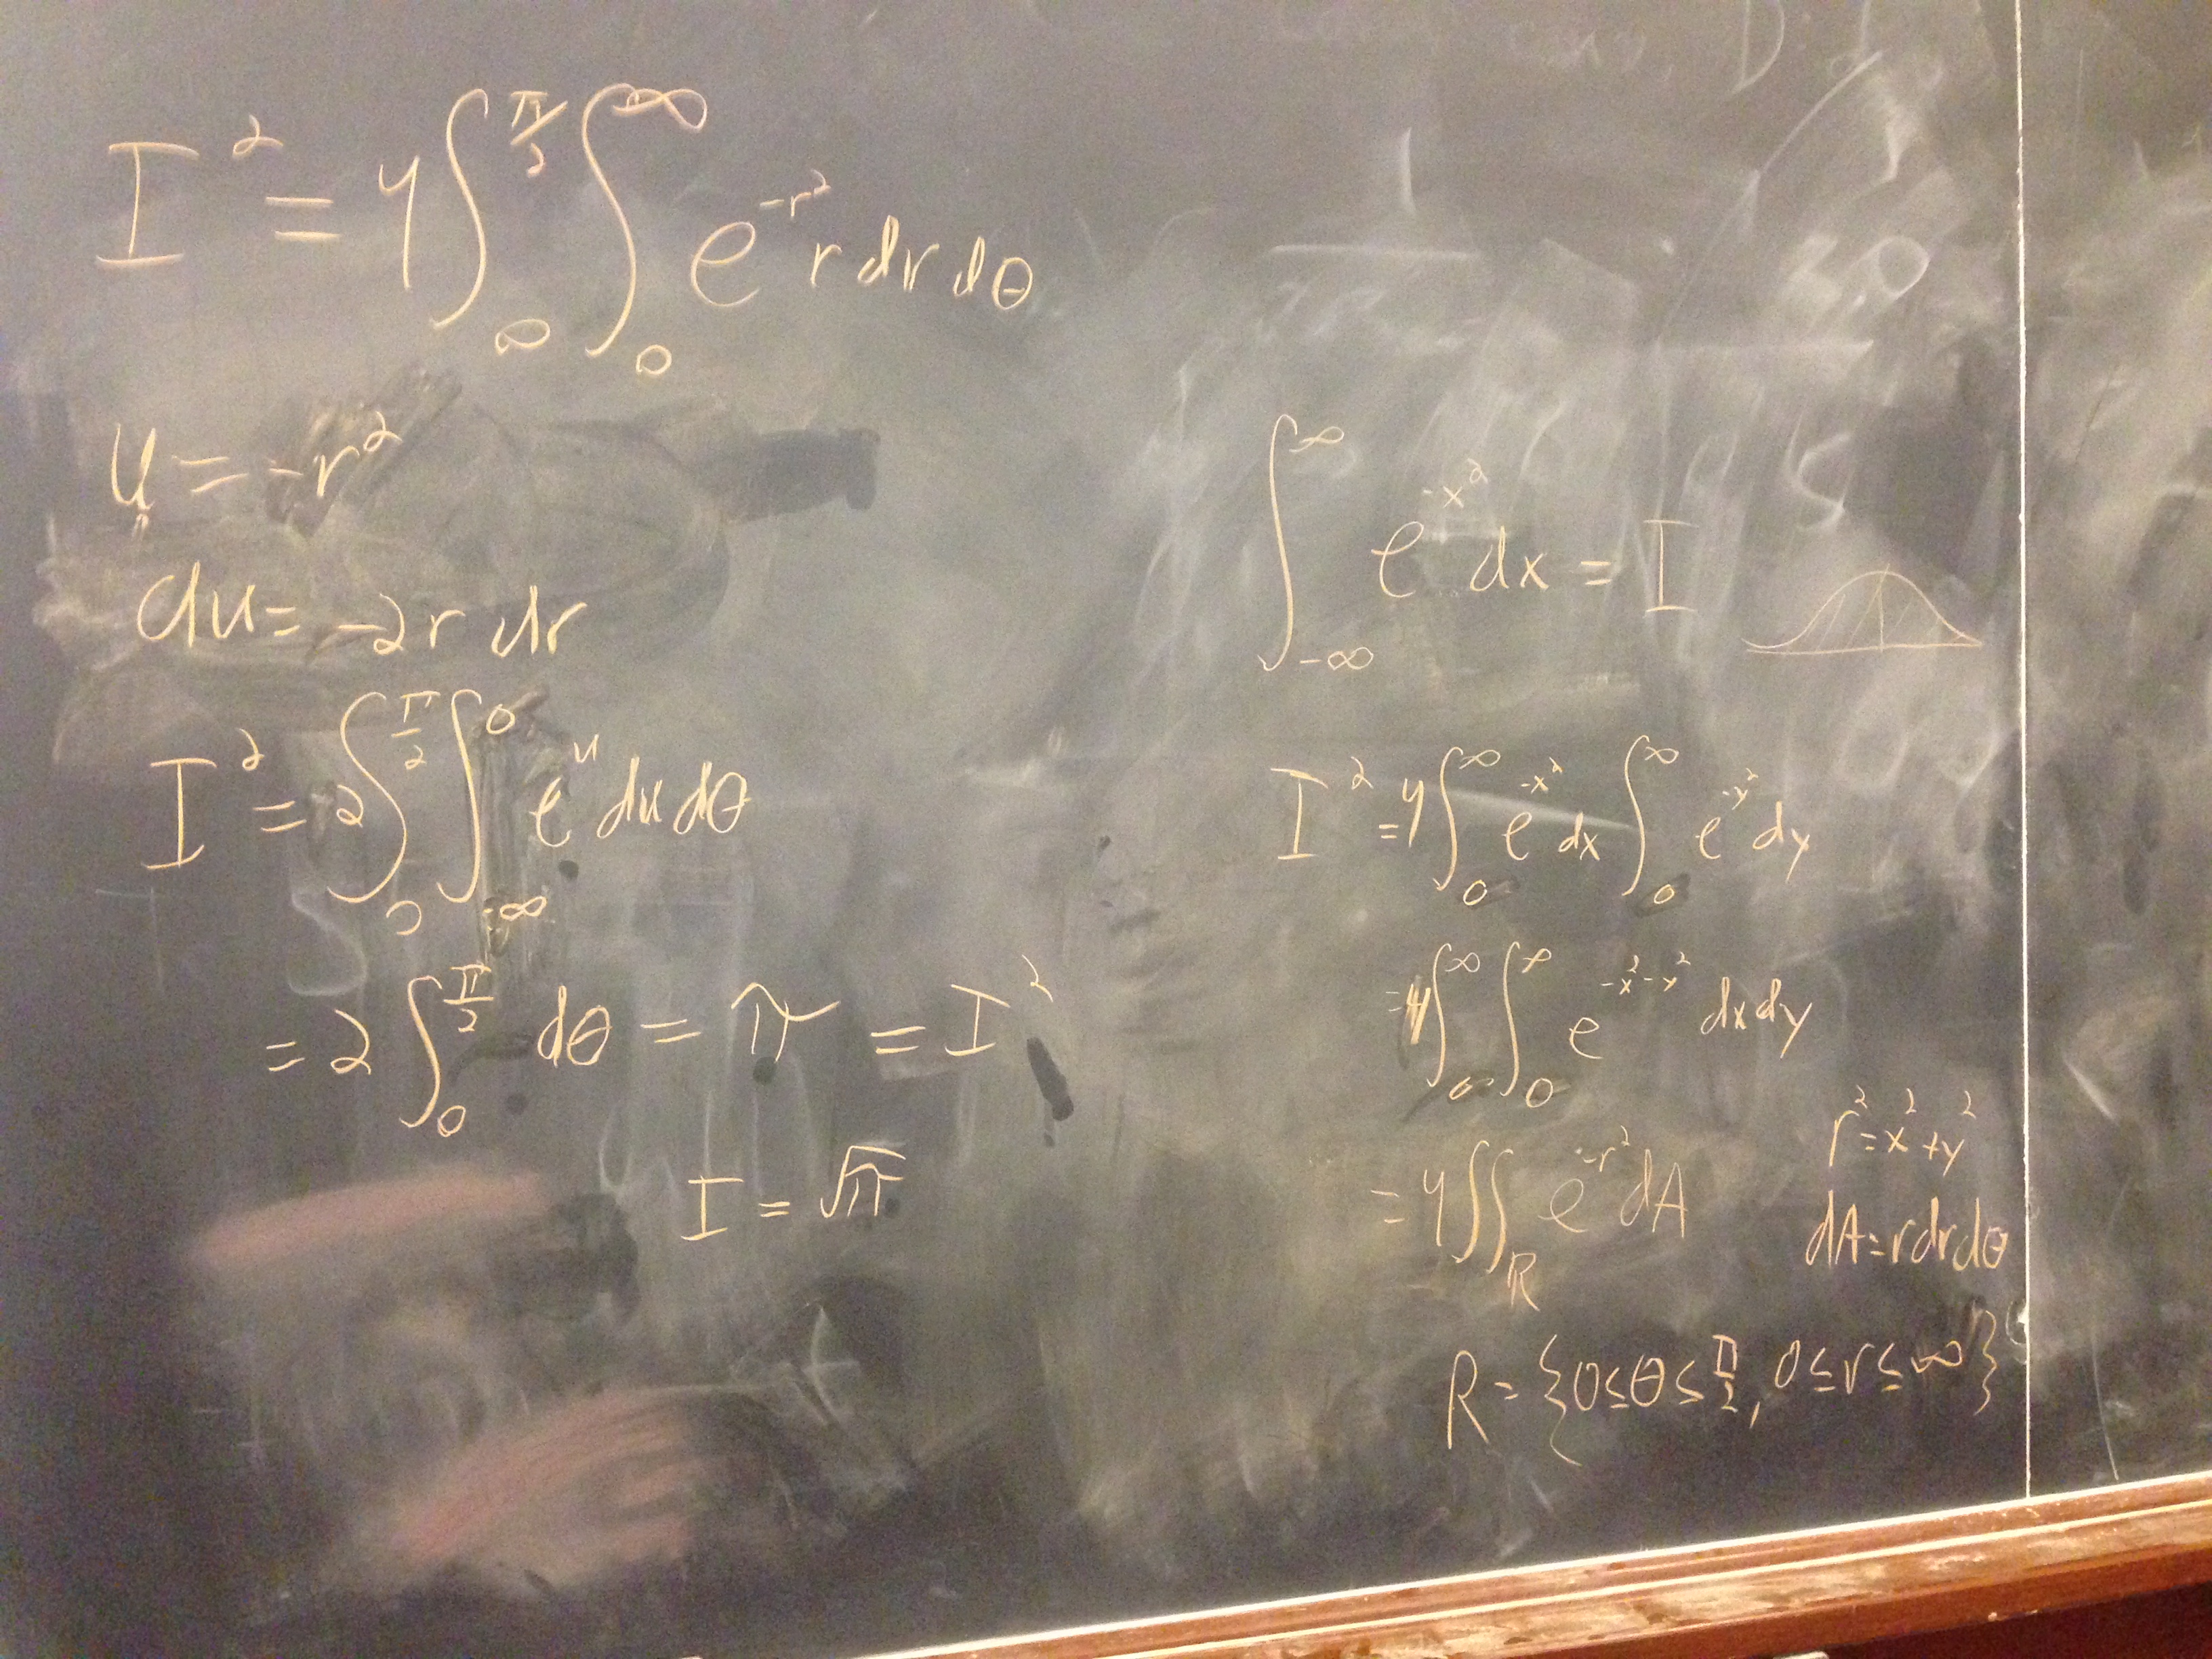 I² = 4∫_∞^{π/2} ∫_0^∞ e^{-r²} r dr dθ
u = -r²
du = -2r dr
I² = 2∫_0^{π/2} ∫_{-∞}^0 e^u du dθ
= 2∫_0^{π/2} dθ = π = I²
I = √π
∫_{-∞}^∞ e^{-x²} dx = I
I² = 4∫_0^∞ e^{-x²} dx ∫_0^∞ e^{-y²} dy
= 4∫_0^∞ ∫_0^∞ e^{-x²-y²} dx dy
r² = x² + y²
= 4∬_R e^{-r²} dA
dA = r dr dθ
R = {0 ≤ θ ≤ π/2, 0 ≤ r ≤ ∞}